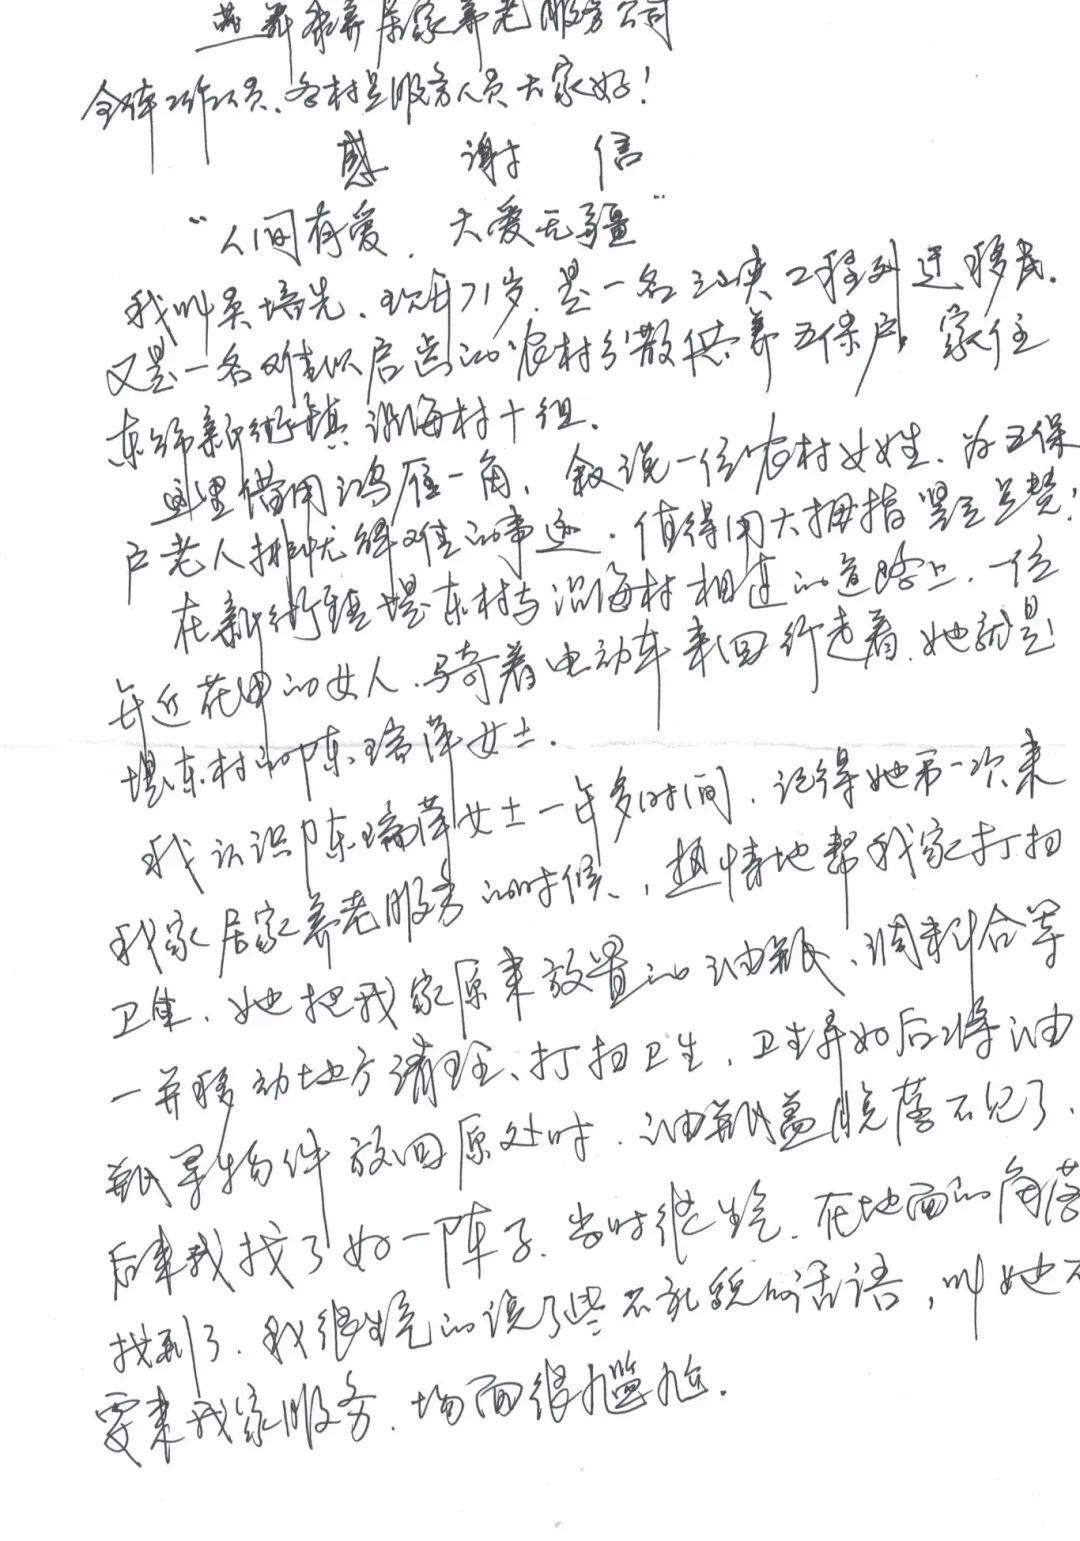 居家养老服务公司
全体工作人员、各村足服务人员大家好！
感 谢 信
“人间有爱，大爱无疆”
我叫吴培先，现年71岁，是一名三峡工程外迁移民，
又是一名难以启齿的农村分散供养五保户，家住
新街镇沿海村十组。
这里借用鸿雁一角，叙说一位农村女姓，为五保
户老人排忧解难的事迹，值得用大拇指竖立点赞！
在新街镇堤东村与沿海村相连的道路上，一位
年近花甲的女人，骑着电动车来回行走着，她就是
堤东村的陈瑞萍女士。
我认识陈瑞萍女士一年多时间，记得她第一次来
我家居家养老服务的时候，热情地帮我家打扫
卫生，她把我家原来放置的油瓶、调料合等
一并移动地方清理、打扫卫生，卫生弄好后将油
瓶等物件放回原处时，油瓶盖脱落不见了，
后来我找了好一阵子，当时很生气，在地面的角落
找到了，我很生气的说了些不礼貌的话语，叫她不
要来我家服务，场面很尴尬。